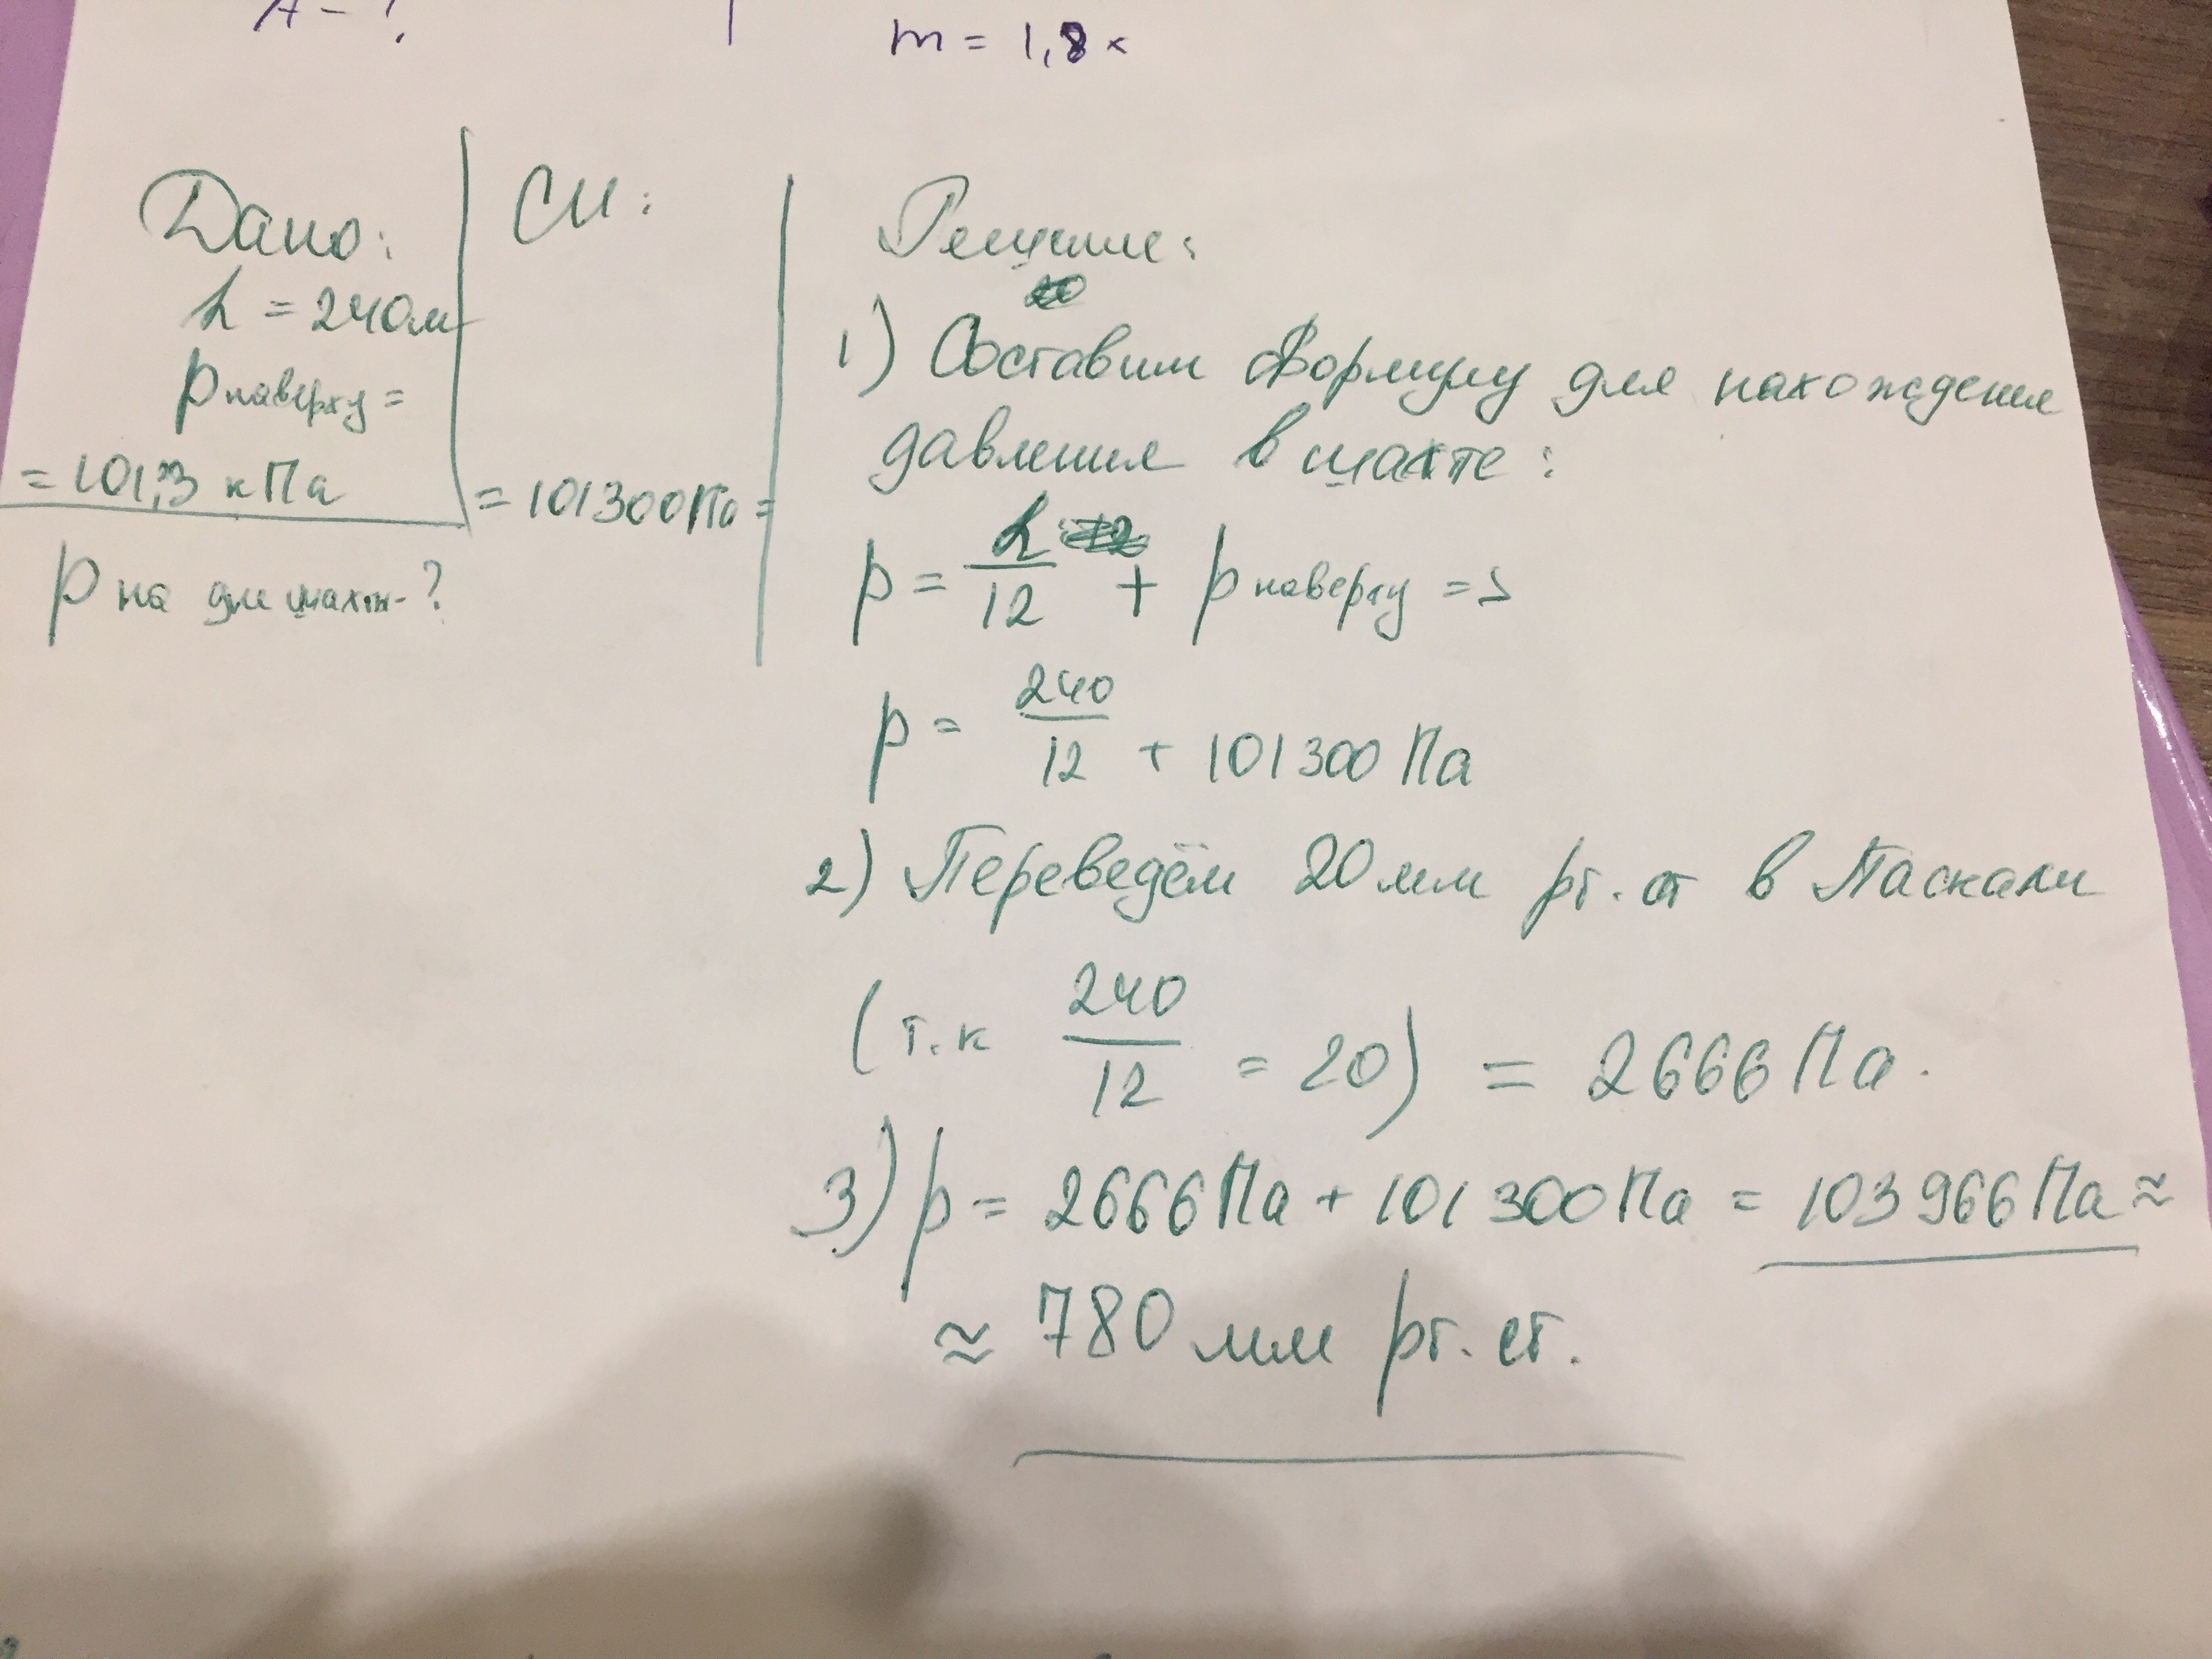 А - ?
m = 1,8 ×
Дано:
h = 240м
р наверху =
= 101,3 кПа
р на дне шахты - ?
СИ:
= 101300 Па =
Решение:
1) Составим формулу для нахождения
давления в шахте:
р = h/12 + р наверху =>
р = 240/12 + 101300 Па
2) Переведём 20 мм рт. ст в Паскали
(т.к 240/12 = 20) = 2666 Па.
3) р = 2666 Па + 101300 Па = 103966 Па ≈
≈ 780 мм рт. ст.